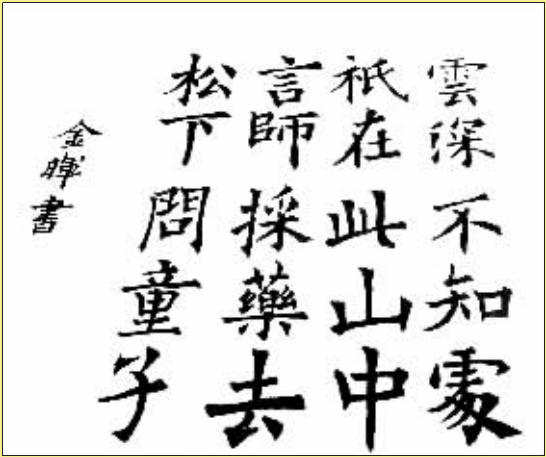 松下問童子
言師採藥去
祇在此山中
雲深不知處
金暉書